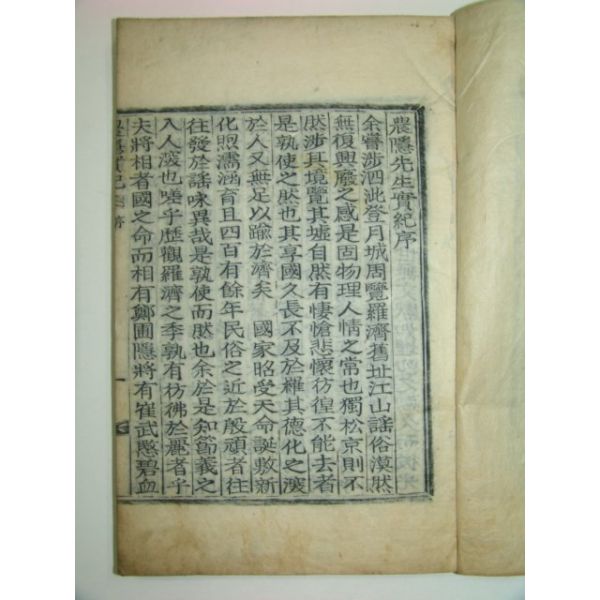 農隱先生實紀序
余嘗涉泗沘登月城周覽羅濟舊址江山謠俗漠然
無復興廢之感是固物理人情之常也獨松京則不
然涉其境覽其墟自然有悽愴悲懷彷徨不能去者
是孰使之然也其享國久長不及於羅其德化之深
於人又無足以踰於濟矣 國家昭受天命誕敷新
化煦濡涵育且四百有餘年民俗之近於殷頑者往
往發於謠咏異哉是孰使而然也余於是知節義之
入人深也嗟乎歷觀羅濟之季孰有彷彿於麗者乎
夫將相者國之命而相有鄭圃隱將有崔武愍碧血
農隱實紀 序 一